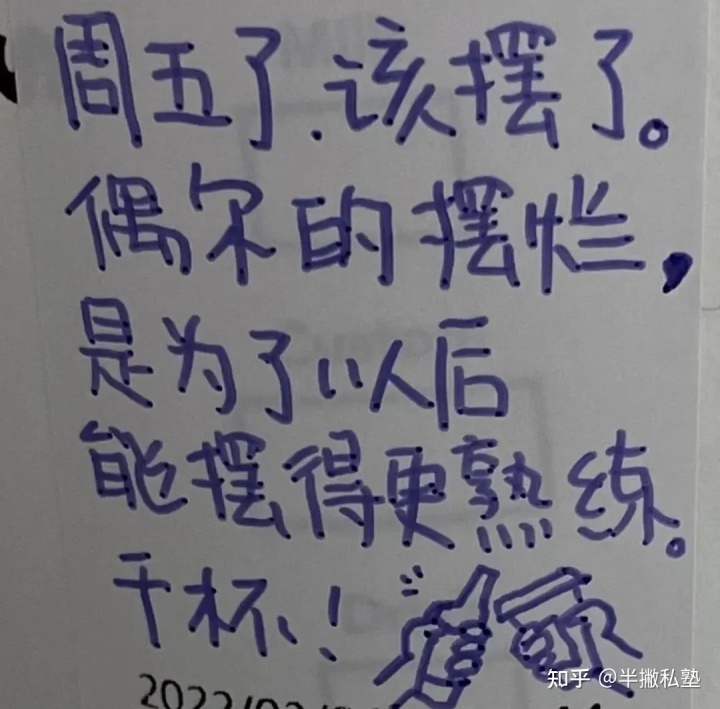 周五了.该摆了。
偶尔的摆烂，
是为了以后
能摆得更熟练。
干杯！
知乎 @半撇私塾